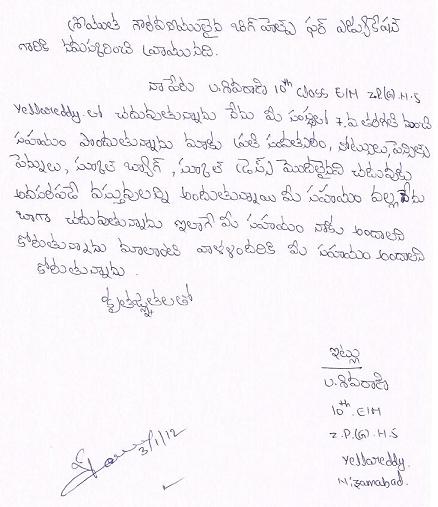 శ్రీయుత గౌరవనీయులైన బిగ్ హెల్ప్ ఫర్ ఎడ్యుకేషన్
గారికి నమస్కరించి వ్రాయునది.
నా పేరు ఒ.శివరాణి 10th class E/M Z.P.(G).H.S
Yellareddy లో చదువుతున్నాను నేను మీ సంస్థలో 7.వ తరగతి నుండి
సహాయం పొందుతున్నాను మాకు ప్రతి సంవత్సరం, నోట్సులు, పెన్సిల్లు
పెన్నులు, స్కూల్ బ్యాగ్, స్కూల్ డ్రెస్స్ మొదలైనవి చదువుకు
అవసరపడే వస్తువులన్ని అందుతున్నాయి మీ సహాయం వల్ల నేను
బాగా చదువుతున్నాను ఇలాగే మీ సహాయం నాకు అందాలని
కోరుతున్నాను మాలాంటి వాళ్ళందరికి మీ సహాయం అందాలని
కోరుతున్నాను.
కృతజ్ఞతలతో
ఇట్లు
ఒ.శివరాణి
10th E/M
Z.P.(G).H.S
Yellareddy.
Nizamabad.
3/1/12